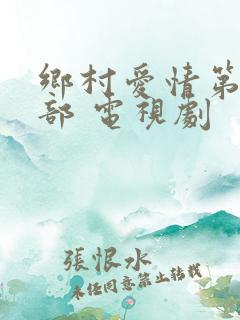 鄉村愛情第
部 電視劇
張恨水
未經同意禁止轉載